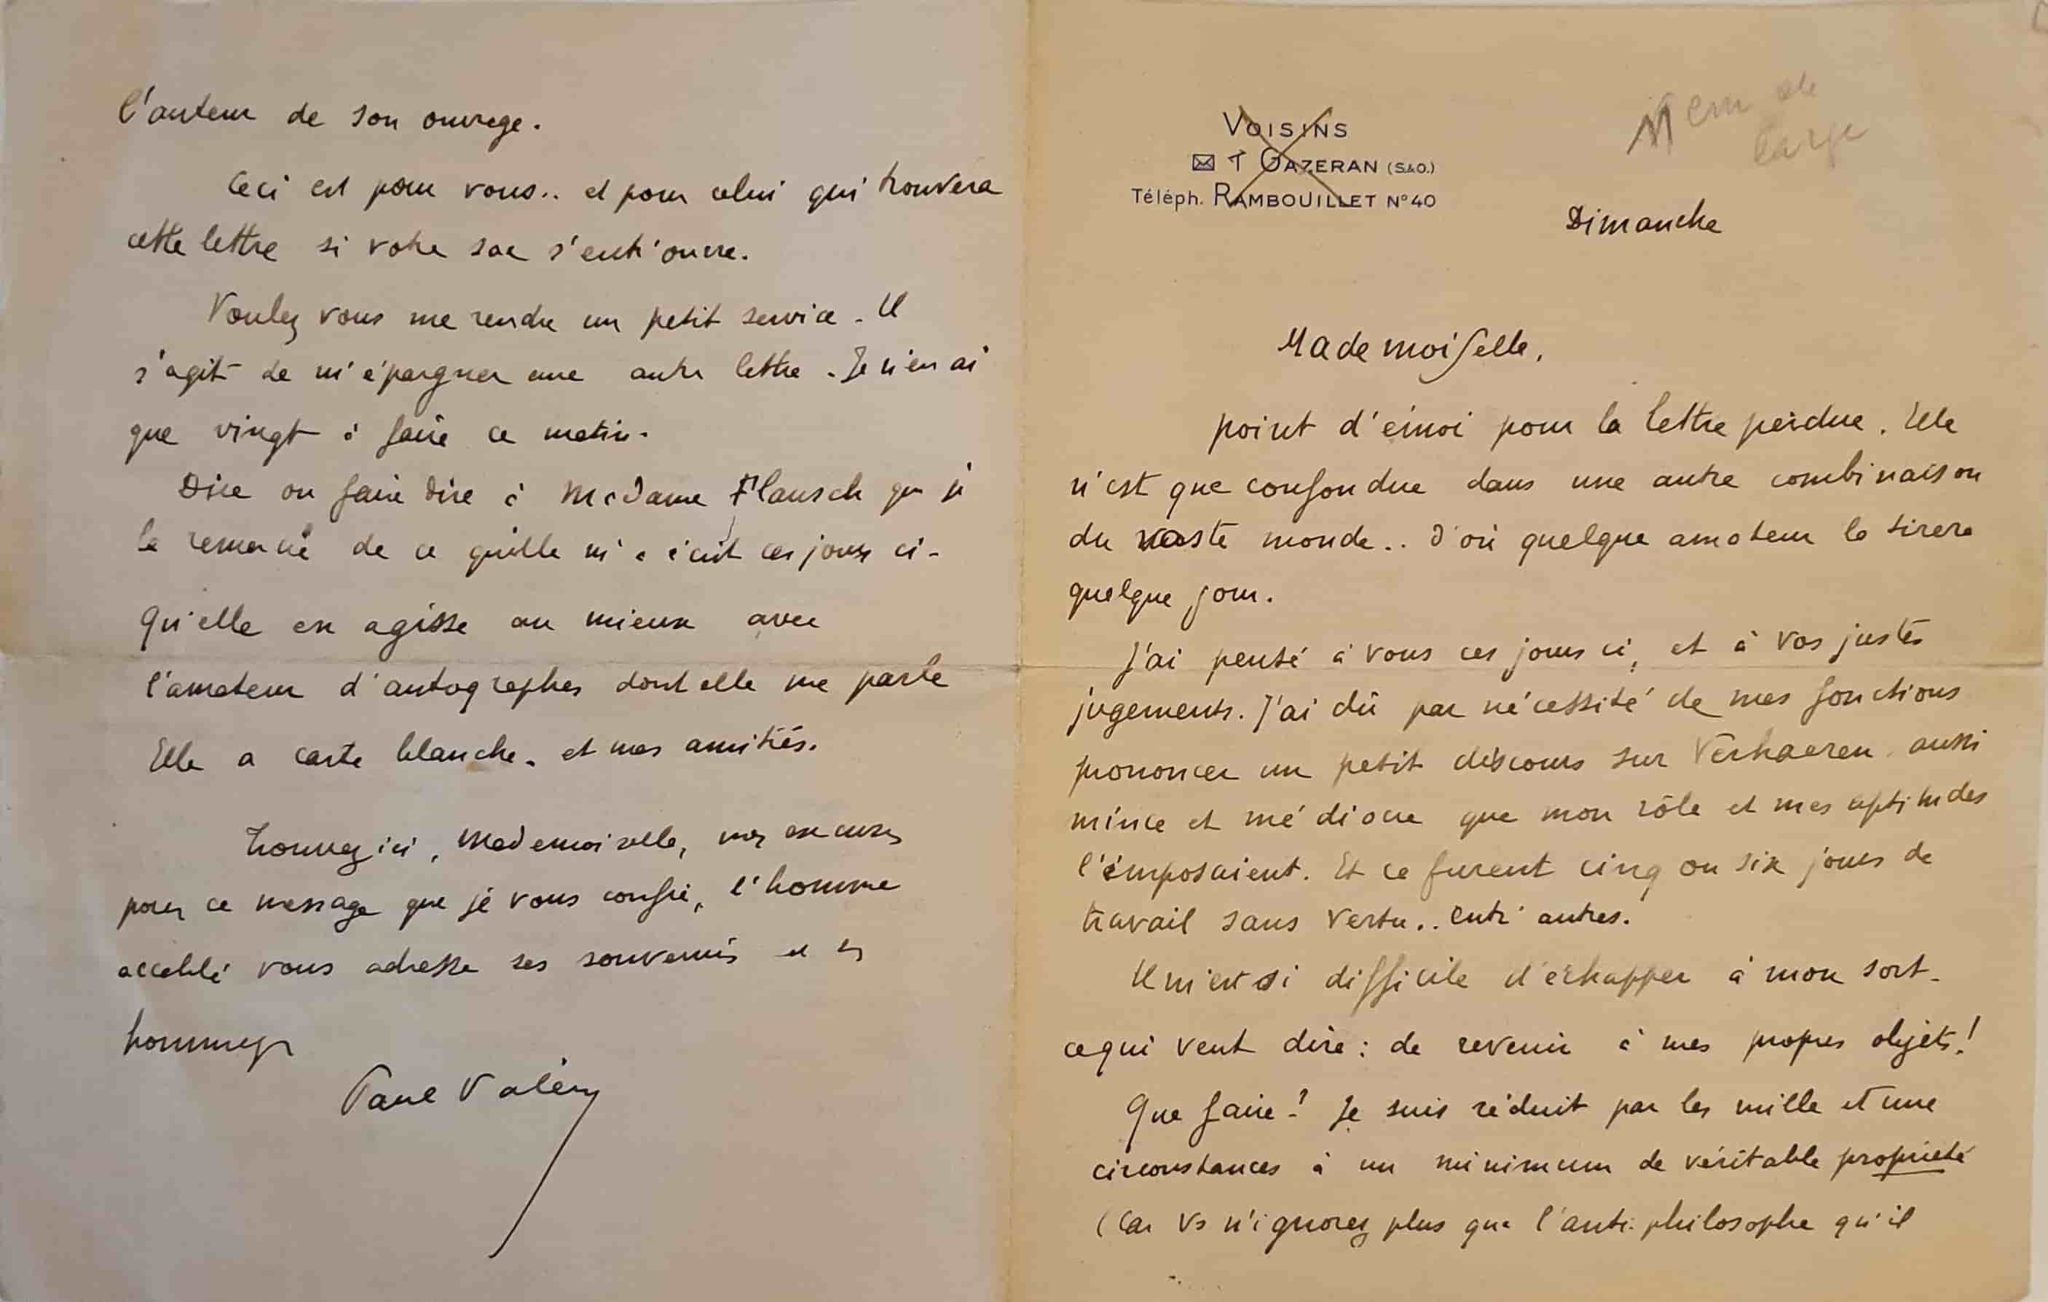 VOISINS
GAZERAN (S.&O.)
Téléph. RAMBOUILLET N° 40
Dimanche
Mademoiselle,
point d'émoi pour la lettre perdue. Elle
n'est que confondue dans une autre combinaison
du vaste monde.. d'où quelque amateur la tirera
quelque jour.
J'ai pensé à vous ces jours ci, et à vos justes
jugements. J'ai dû par nécessité de mes fonctions
prononcer un petit discours sur Verhaeren aussi
mince et médiocre que mon rôle et mes aptitudes
l'imposaient. Et ce furent cinq ou six jours de
travail sans vertu.. entr'autres.
Il m'est si difficile d'échapper à mon sort -
ce qui veut dire : de revenir à mes propres objets !
Que faire ? Je suis réduit par les mille et une
circonstances à un minimum de véritable propriété
(Car vs n'ignorez plus que l'anti-philosophe qu'il
l'auteur de son ouvrage.
Ceci est pour vous.. et pour celui qui trouvera
cette lettre si votre sac s'entr'ouvre.
Voulez vous me rendre un petit service - Il
s'agit de m'épargner une autre lettre - Je n'en ai
que vingt à faire ce matin.
Dire ou faire dire à Madame Flausch que je
la remercie de ce qu'elle m'a écrit ces jours ci -
Qu'elle en agisse au mieux avec
l'amateur d'autographes dont elle me parle
Elle a carte blanche - et mes amitiés.
Trouvez ici, Mademoiselle, mes excuses
pour ce message que je vous confie, l'homme
accablé vous adresse ses souvenirs et ses
hommages
Paul Valéry